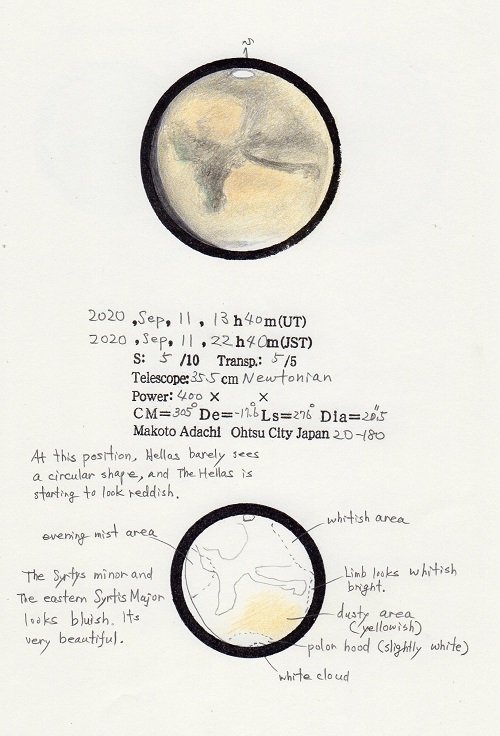 S
2020, Sep, 11, 13h40m(UT)
2020, Sep, 11, 22h40m(JST)
S: 5 /10 Transp.: 5 /5
Telescope: 35.5 cm Newtonian
Power: 400 × ×
CM=305° De=-17.6° Ls=276° Dia=20.5"
Makoto Adachi Ohtsu City Japan 20-180
At this position, Hellas barely sees
a circular shape, and The Hellas is
starting to look reddish.
evening mist area
whitish area
The Syrtys minor and
The eastern Syrtis Major
looks bluish. Its
very beautiful.
Limb looks whitish
bright.
dusty area
(yellowish)
polon hood (slightly white)
white cloud